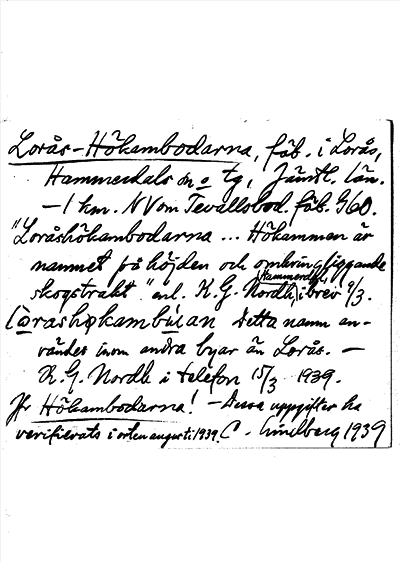 Lorås-Hökambodarna, fäb. i Lorås,
Hammerdals sn o tg, Jämtl. län.
– 1 km. NV om Tevallsbod. fäb. G60.
"Loråshökambodarna ... Hökammen är
namnet på höjden och omkringliggande
skogstrakt" enl. K. G. Nordh, (Hammerdal) i brev 9/3.
Detta namn an-
vändes inom andra byar än Lorås. –
K. G. Nordh i telefon 15/3 1939.
Jfr Hökambodarna! – Dessa uppgifter ha
verifierats i orten augusti 1939. C. Lindberg 1939